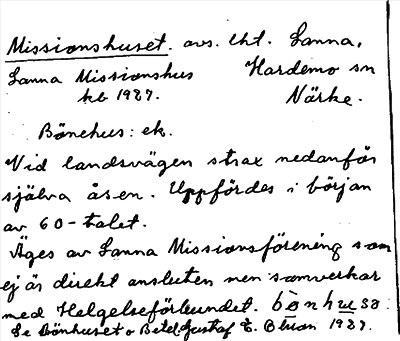 Missionshuset. avs. lht. Lanna,
Lanna Missionshus Hardemo sn
kb 1927. Närke.
Bönehus: ek.
Vid landsvägen strax nedanför
själva åsen. Uppfördes i början
av 60-talet.
Äges av Lanna Missionsförening som
ej är direkt ansluten men samverkar
med Helgelseförbundet. bönhuse.
Se Bönhuset o Betel. Gustaf E. 1927.